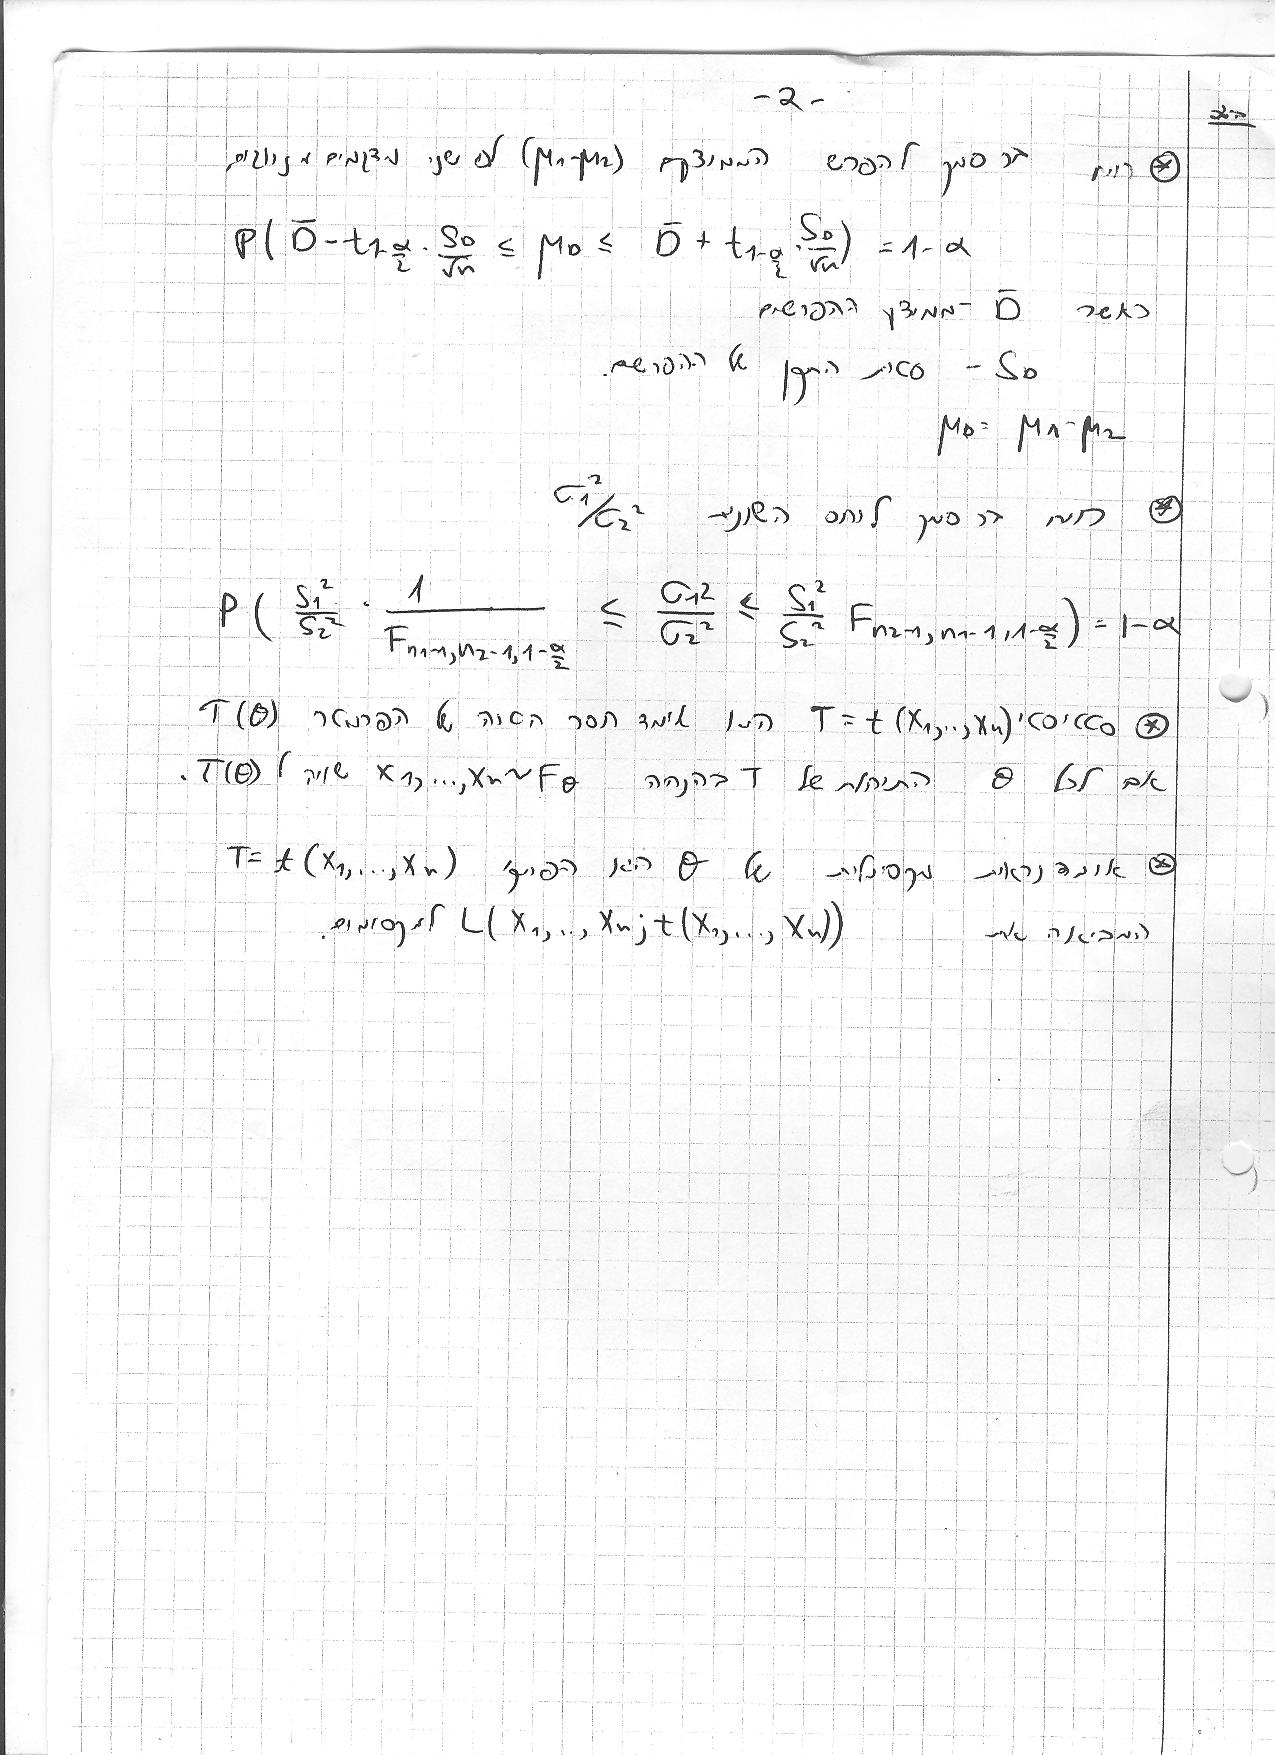 - 2 -
בה
⊛ רווח בר סמך להפרש הממוצעים (μ1-μ2) לפי שני מדגמים מזווגים
P( D̄ - t1-α/2 · SD/√n ≤ μD ≤ D̄ + t1-α/2 · SD/√n ) = 1-α
כאשר D̄ - ממוצע ההפרשים
SD - סטית התקן של ההפרשים.
μD = μ1-μ2
⊛ רווח בר סמך ליחס השונויות σ1²/σ2²
P( S1²/S2² · 1/Fn1-1,n2-1,1-α/2 ≤ σ1²/σ2² ≤ S1²/S2² Fn2-1,n1-1,1-α/2 ) = 1-α
⊛ סטטיסטי T = t(X1,...,Xn) הנו אומד חסר הטיה של הפרמטר T(θ)
אם לכל θ התוחלת של T בהנחה X1,...,Xn~Fθ שווה ל T(θ).
⊛ אומד נראות מקסימלית של θ הנו הפונק' T = t(X1,...,Xn)
המביאה את L(X1,...,Xn; t(X1,...,Xn)) למקסימום.